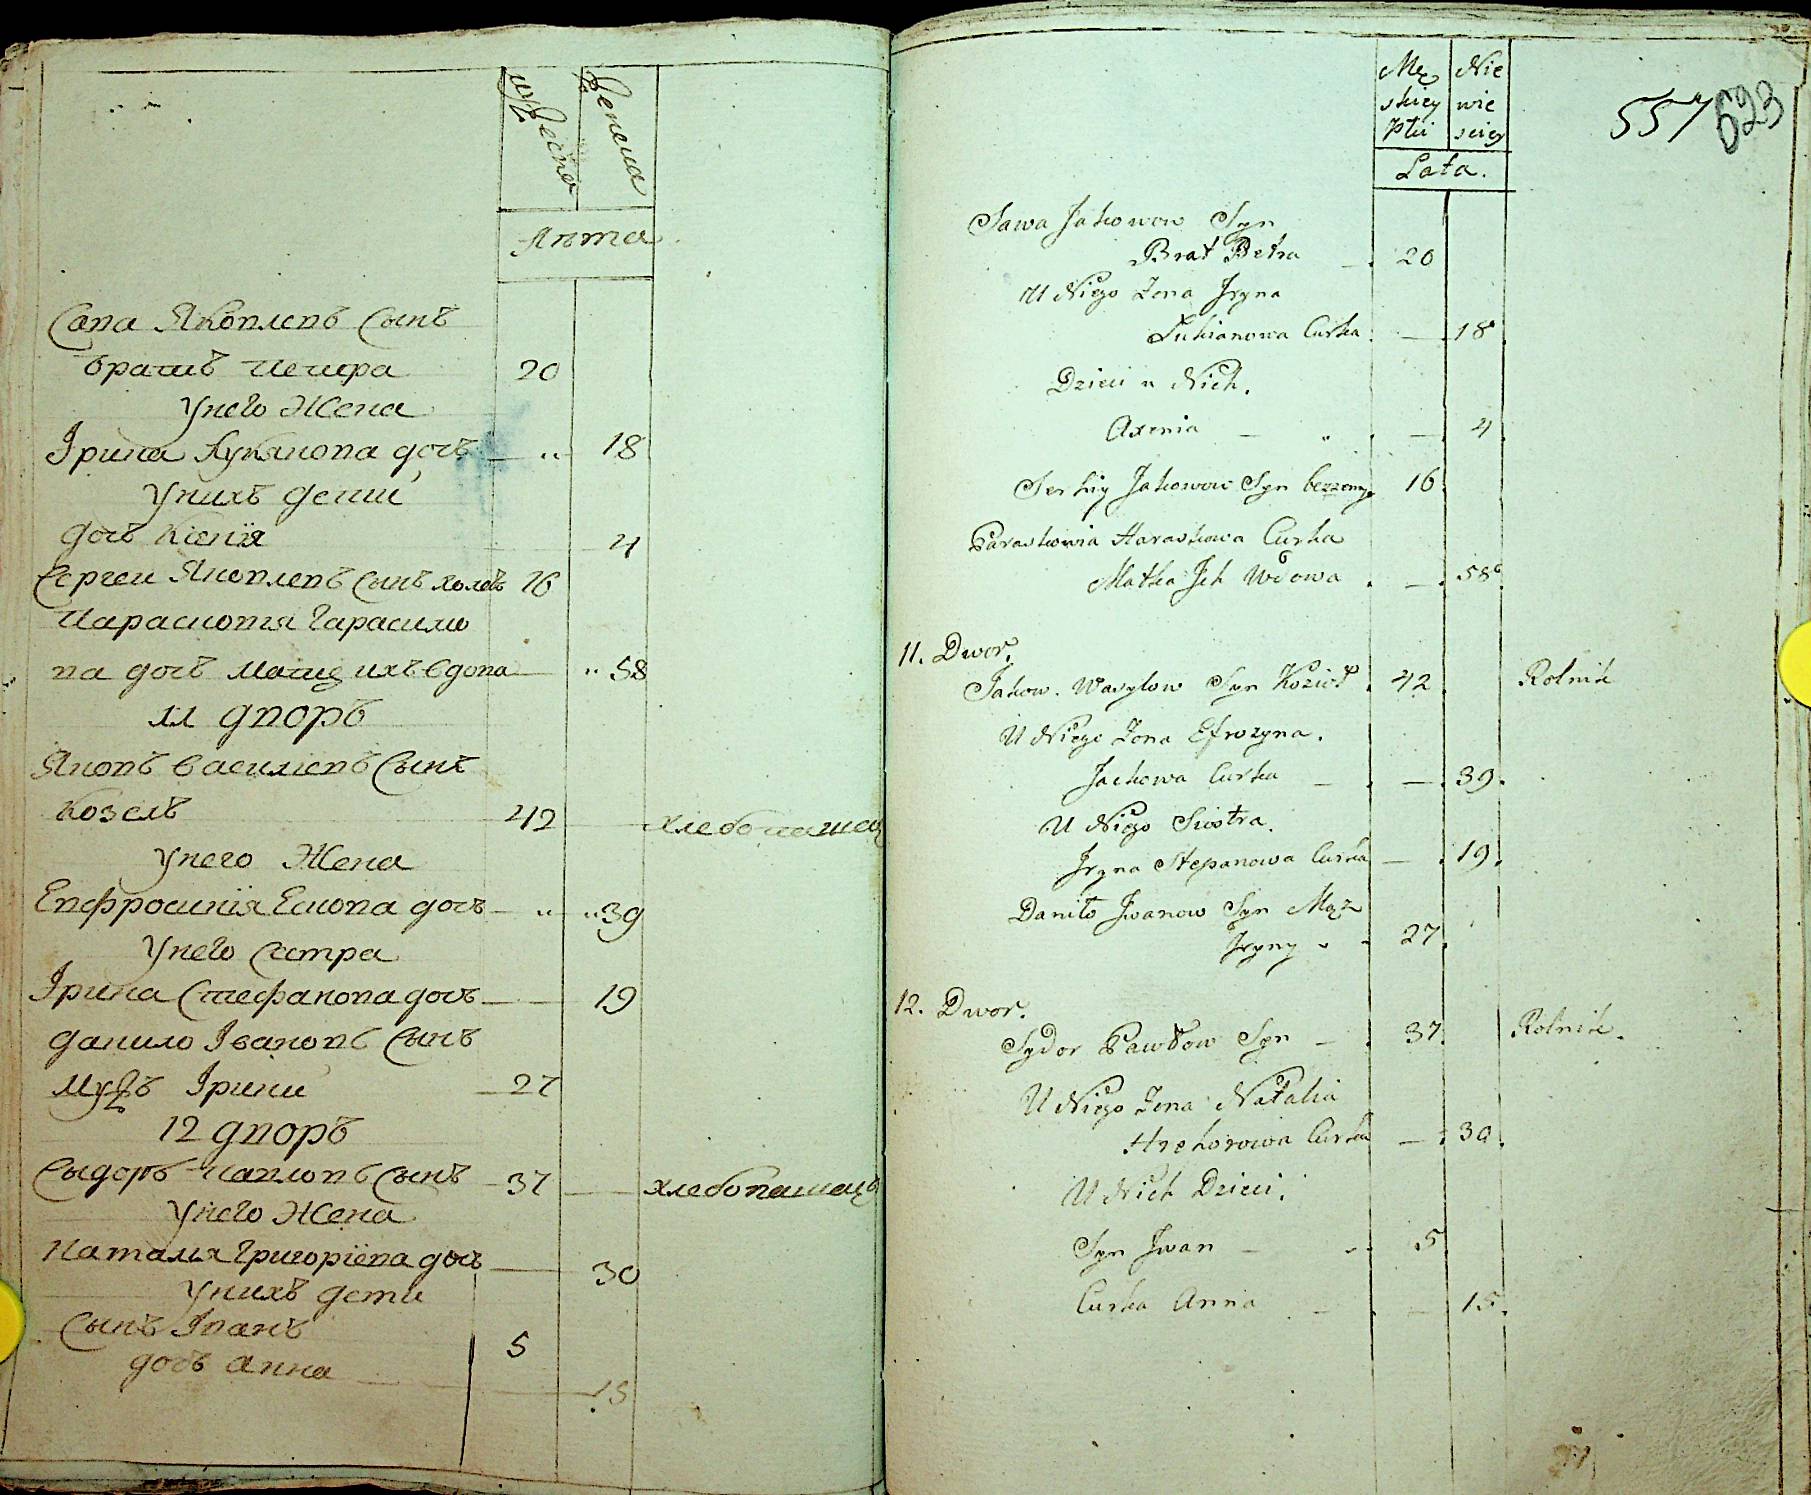 Мужеска
Женска
Лѣта
Сава Яковлевъ Сынъ
братъ Петра 20
У него Жена
Ірина Лукянова дочь — „ 18
У нихъ дети
дочь Ксенія 4
Сергеи Яковлевъ Сынъ холос 16
Парасковія Гарасимо
ва дочь мать ихъ вдова — „ 58
11 дворъ
Яковъ Василіевъ Сынъ
Козелъ 42 — хлебопашец
У него Жена
Евфросинія Ескова дочь — „ „ 39
У него Сестра
Ірина Стефанова дочь — 19
Данило Івановъ Сынъ
Мужъ Ірини — 27
12 дворъ
Сыдоръ Павловъ Сынъ — 37 — хлебопашецъ
У него Жена
Наталя Григоріева дочь — 30
У нихъ дети
Сынъ Іванъ 5
дочь анна — 15
557 623
Mę Nie
skiey wie
Płci sciey
Lata.
Sawa Jakowow Syn
Brat Petra — 20
U Niego Zona Jryna
Lukianowa Curka — 18
Dzieci u Nich.
Axenia — „ — 4
Serhiy Jakowow Syn bezzenny 16
Paraskowia Haraskowa Curka
Matka Jch Wdowa . — 58
11. Dwor.
Jakow. Wasylow Syn Kozioł . 42 Rolnik
U Niego Zona Efrozyna.
Jachowa Curka — . — 39.
U Niego Siostra.
Jryna Stepanowa Curka — 19.
Daniło Jwanow Syn Mąż
Jryny „ „ 27.
12. Dwor.
Sydor Pawłow Syn — 37. Rolnik.
U Niego Zona Natalia
Hrehorowa Curka — 30.
U Nich Dzieci.
Syn Jwan — „ 5
Curka Anna — . — 15.